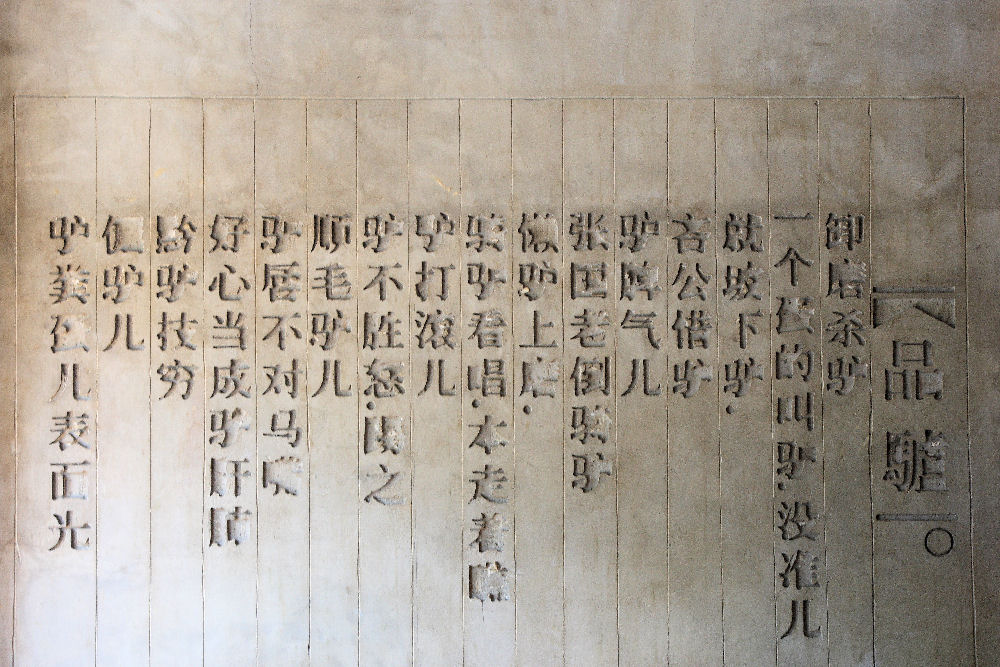 品驢。
卸磨杀驴
一个蛋的叫驴.没准儿
就坡下驴.
公借驴
驴脾气儿
张国老倒骑驴
懒驴上磨.
骑驴看唱.本走着瞧
驴打滚儿
驴不胜怒.蹄之
顺毛驴儿
驴唇不对马嘴
好心当成驴肝肺
黔驴技穷
倔驴儿
驴粪蛋儿表面光